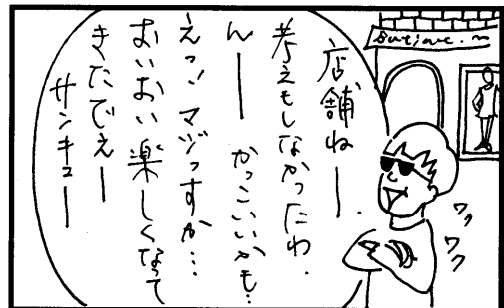 店舗ねー
考えもしなかったわ.
んー かっこいいかも…
えっ、マジっすか…
おいおい楽しくなって
きたでえー
サンキュー
ワク
ワク